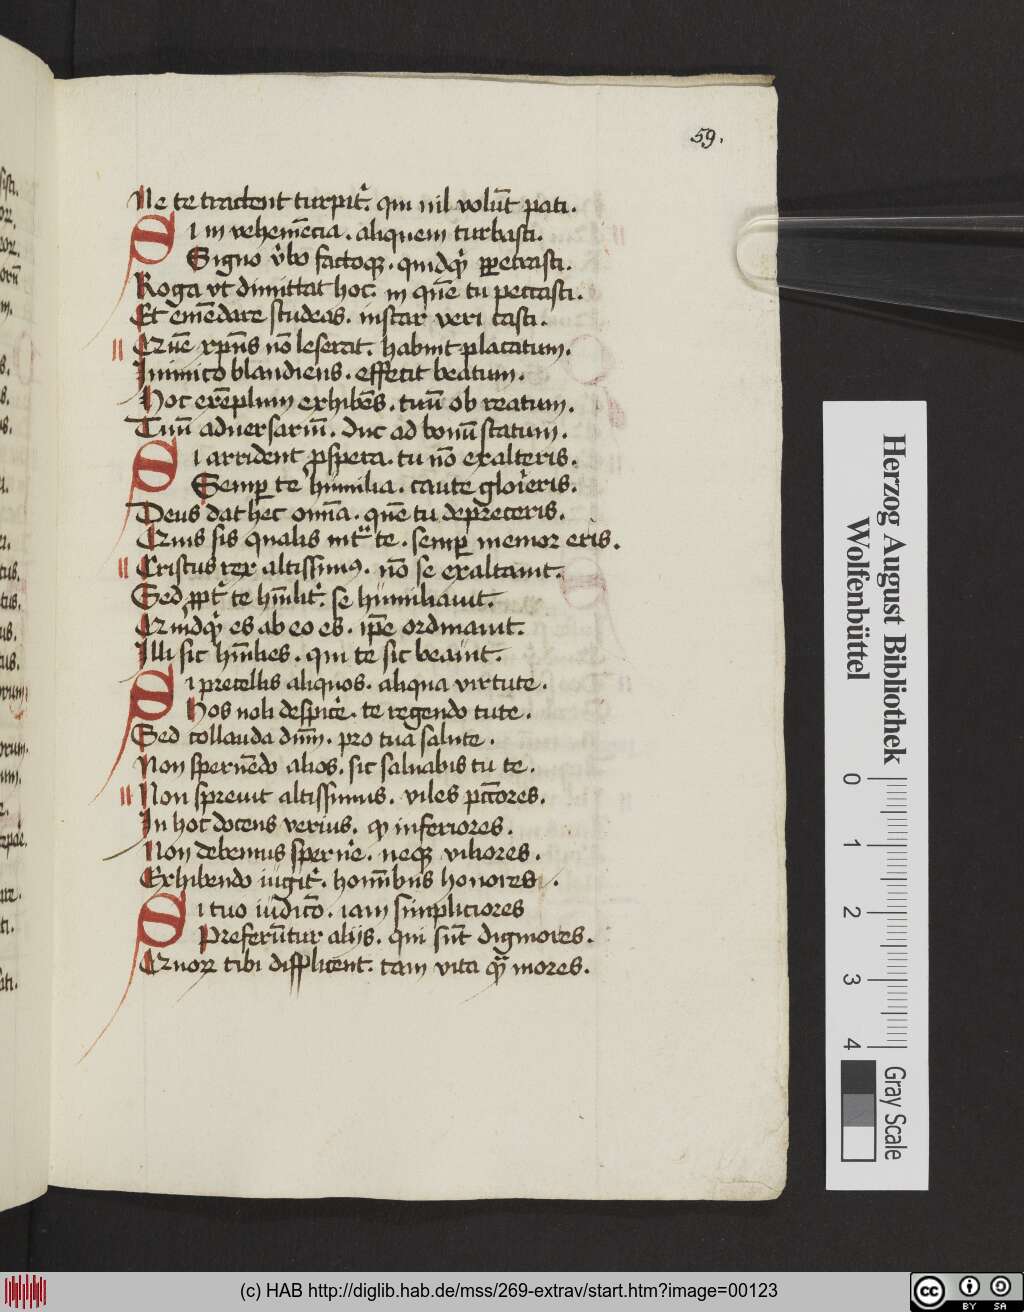 59.
Ne te tractent turpit᷑. qui nil volūt pati.
Si in vehemēcia. aliquem turbasti.
Signo v᷑bo factoqꝫ. quidqͥ ꝑpetrasti.
Roga vt dimittat hoc. in quē tu peccasti.
Et emēdare studeas. instar veri casti.
Inimico blandiens. effecit beatum.
Hoc exēplum exhibēs. tuū ob reatum.
Tuū aduersariū. duc ad bonū statum.
Si arrident ꝓspera. tu nō exalteris.
Semꝑ te humilia. caute glorieris.
Deus dat hec omīa. quē tu depreceris.
sis qualis int᷑ te. semꝑ memor eris.
Cristus rex altissimꝰ. nō se exaltauit.
Sed ꝓpt᷑ te hūilit᷑. se humiliauit.
es ab eo es. ip̄e ordinauit.
Illi sic hūilies. qui te sic beauit.
Si precellis aliquos. aliqua virtute.
Hos noli despic᷑e. te regendo tute.
Sed collauda dn̄m. pro tua salute.
Non spernēdo alios. sic saluabis tu te.
Non spreuit altissimus. viles pctōres.
In hoc docens verius. ꝙ inferiores.
Non debemus spern᷑e. neqꝫ viliores.
Exhibendo iugit᷑. homībus honores.
Si tuo iudicō. iam simpliciores
Preferūtur alijs. qui sūt digniores.
tibi displicent. tam vita qͣ̄ mores.
Herzog August Bibliothek
Wolfenbüttel
0 1 2 3 4
Gray Scale
(c) HAB http://diglib.hab.de/mss/269-extrav/start.htm?image=00123
cc BY SA